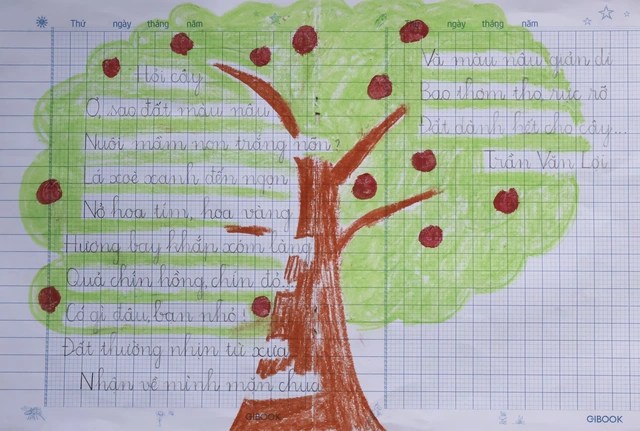 Thứ ngày tháng năm
ngày tháng năm
Hỏi cây
Ơ, sao đất màu nâu
Nuôi mầm non trắng nõn?
Lá xoè xanh đến ngọn
Nở hoa tím, hoa vàng
Hương bay khắp xóm làng
Quả chín hồng, chín đỏ
Có gì đâu, bạn nhỏ!
Đất thường nhịn từ xưa
Nhận về mình mặn chua
Và màu nâu giản dị
Bao thơm tho rực rỡ
Đất dành hết cho cây...
Trần Văn Lợi
GIBOOK
GIBOOK